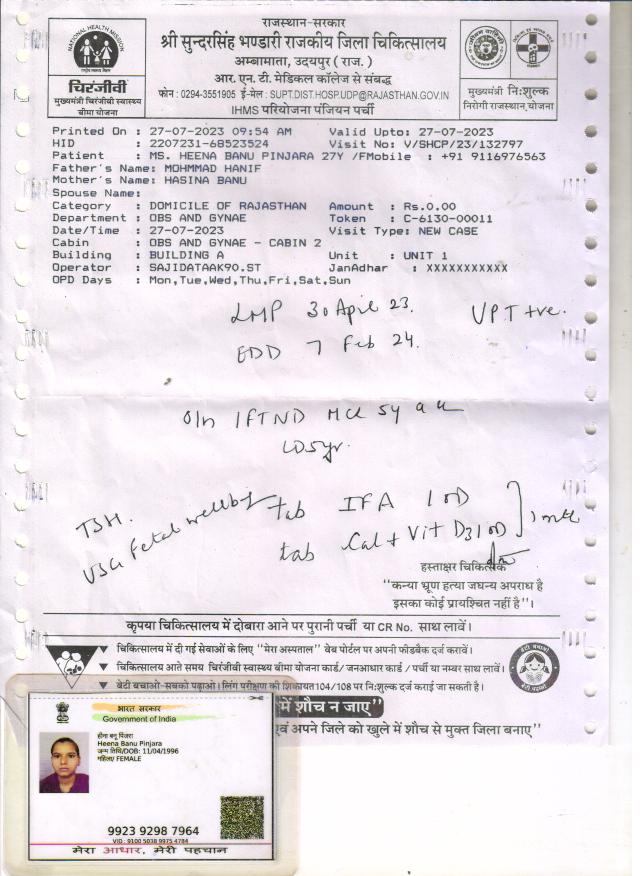 राजस्थान-सरकार
श्री सुन्दरसिंह भण्डारी राजकीय जिला चिकित्सालय
अम्बामाता, उदयपुर ( राज. )
आर. एन. टी. मेडिकल कॉलेज से संबद्ध
फोन : 0294-3551905 ई-मेल : SUPT.DIST.HOSP.UDP@RAJASTHAN.GOV.IN
IHMS परियोजना पंजियन पर्ची
NATIONAL HEALTH MISSION
चिरंजीवी
मुख्यमंत्री चिरंजीवी स्वास्थ्य
बीमा योजना
मुख्यमंत्री निःशुल्क
निरोगी राजस्थान, योजना
Printed On : 27-07-2023 09:54 AM Valid Upto: 27-07-2023
HID : 2207231-68523524 Visit No: V/SHCP/23/132797
Patient : MS. HEENA BANU PINJARA 27Y /FMobile : +91 9116976563
Father's Name: MOHMMAD HANIF
Mother's Name: HASINA BANU
Spouse Name:
Category : DOMICILE OF RAJASTHAN Amount : Rs.0.00
Department : OBS AND GYNAE Token : C-6130-00011
Date/Time : 27-07-2023 Visit Type: NEW CASE
Cabin : OBS AND GYNAE - CABIN 2
Building : BUILDING A Unit : UNIT 1
Operator : SAJIDATAAK90.ST JanAdhar : XXXXXXXXXXX
OPD Days : Mon,Tue,Wed,Thu,Fri,Sat,Sun
LMP 30 April 23. VPT +ve.
EDD 7 Feb 24.
O/h 1FTND MCh 5y
LD 5yr.
TSH.
USG Fetal wellbeing
tab IFA 1 OD
tab Cal + Vit D3 1 OD
1 mth
हस्ताक्षर चिकित्सक
"कन्या भ्रूण हत्या जघन्य अपराध है
इसका कोई प्रायश्चित नहीं है"।
कृपया चिकित्सालय में दोबारा आने पर पुरानी पर्ची या CR No. साथ लावें।
▼ चिकित्सालय में दी गई सेवाओं के लिए "मेरा अस्पताल" वेब पोर्टल पर अपनी फीडबैक दर्ज करावें।
▼ चिकित्सालय आते समय चिरंजीवी स्वास्थ्य बीमा योजना कार्ड/ जनआधार कार्ड / पर्ची या नम्बर साथ लावें।
▼ बेटी बचाओ-सबको पढ़ाओ। लिंग परीक्षण की शिकायत 104/108 पर निःशुल्क दर्ज कराई जा सकती है।
बेटी बचाओ
बेटी पढ़ाओ
में शौच न जाए"
एवं अपने जिले को खुले में शौच से मुक्त जिला बनाए"
भारत सरकार
Government of India
हीना बनू पिंजरा
Heena Banu Pinjara
जन्म तिथि/DOB: 11/04/1996
महिला/ FEMALE
9923 9298 7964
VID : 9100 5038 9975 4784
मेरा आधार, मेरी पहचान